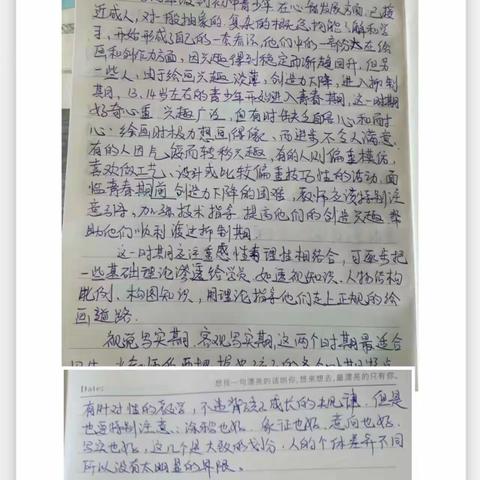 近成人,对一般抽象的复杂的概念均能了解和掌
握,开始形成自己的一套看法,他们中的一部分人在绘
画和创作力方面,因兴趣得到稳定而渐趋回升,但另
一些人,由于绘画兴趣淡薄,创造力下降,进入抑制
期目,13、14岁左右的青少年开始进入青春期,这一时期
好奇心重,兴趣广泛,但有时会缺乏自信心和耐
心.绘画时极力想画得像,而进步不令人满意.
有的人因气馁而转移兴趣,有的人则偏重模仿,
喜欢做工艺、设计或比较偏重技巧性的活动,面
临青春期前创造力下降的困难,教师应该特别注
意引导,加强技术指导,提高他们的创造兴趣,帮
助他们顺利渡过抑制期.
这一时期应注重感性与理性相结合,可逐步把
一些基础理论渗透给学员,如透视知识、人物结构
比例、构图知识,用理论指导他们走上正规的绘
画道路.
视觉写实期、客观写实期,这两个时期最适合
Dates:
想找一句漂亮的话哄你,想来想去,最漂亮的只有你。
有针对性的教学,不违背孩子成长的规律,但是
也要特别注意:涂鸦也好、象征也好、意向也好、
写实也好,这几个是大致的划分,人的个体差异不同
所以没有太明显的界限。